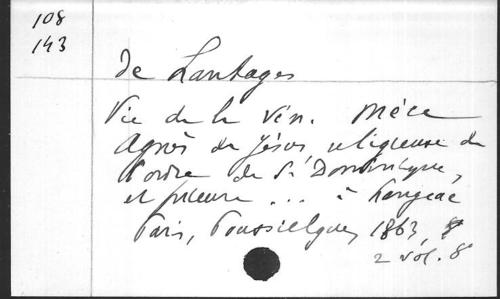 108
143
de Lantages
Vie de la Vén. Mère
Agnès de Jésus, religieuse de
l'ordre de St Dominique,
et prieure ... à Langeac
Paris, Poussielgue, 1863,
2 vol. 8°